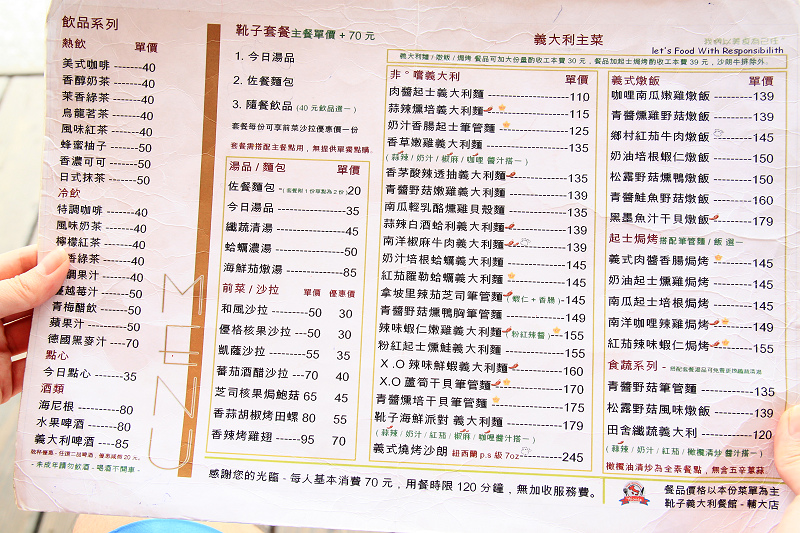 飲品系列
熱飲 單價
美式咖啡 --------40
香醇奶茶 --------40
茉香綠茶 --------40
烏龍茗茶 --------40
風味紅茶 --------40
蜂蜜柚子 --------50
香濃可可 --------50
日式抹茶 --------50
冷飲
特調咖啡 --------40
風味奶茶 --------40
檸檬紅茶 --------40
香綠茶 --------40
調果汁 --------40
越莓汁 --------50
青梅醋飲 --------50
蘋果汁 --------50
德國黑麥汁 ----70
點心
今日點心 ------35
酒類
海尼根 ---------80
水果啤酒 ------80
義大利啤酒 ----85
乾杯優惠，任選二品啤酒，優惠減免 20 元。
- 未成年請勿飲酒 - 喝酒不開車 -
MENU
靴子套餐 主餐單價 + 70 元
1. 今日湯品
2. 佐餐麵包
3. 隨餐飲品 (40 元飲品選一 )
套餐每份可享前菜沙拉優惠價一份
套餐需搭配主餐點用，無提供單獨點購
湯品 / 麵包 單價
佐餐麵包 -(套餐附 1 份單點為 2 份 )20
今日湯品 ------------35
纖蔬清湯 ------------45
蛤蠣濃湯 ------------50
海鮮茄燉湯 ---------85
前菜 / 沙拉 單價 優惠價
和風沙拉 --------50 30
優格核果沙拉 ---50 30
凱薩沙拉 --------55 35
蕃茄酒醋沙拉 ---70 40
芝司核果焗鮑菇 65 45
香蒜胡椒烤田螺 80 55
香辣烤雞翅 ------95 70
義大利主菜
let's Food With Responsibilith
義大利麵 / 燉飯 / 焗烤 餐品可加大份量酌收工本費 30 元，餐品加起士焗烤酌收工本費 39 元，沙朗牛排除外。
非°嚐義大利 單價
肉醬起士義大利麵 ------------110
蒜辣燻培義大利麵 ------------115
奶汁香腸起士筆管麵 ---------125
香草嫩雞義大利麵 ------------135
( 蒜辣 / 奶汁 / 椒麻 / 咖哩 醬汁搭一 )
香茅酸辣透抽義大利麵 ------135
青醬野菇嫩雞義大利麵 ------135
南瓜輕乳酪燻雞貝殼麵 ------135
蒜辣白酒蛤利義大利麵 ------139
南洋椒麻牛肉義大利麵 ------139
奶汁培根蛤蠣義大利麵 ------145
紅茄羅勒蛤蠣義大利麵 ------145
拿坡里辣茄芝司筆管麵 ( 蝦仁 + 香腸 )-145
青醬野菇燻鴨胸筆管麵 ------149
辣味蝦仁嫩雞義大利麵 ( 粉紅辣醬 )---155
粉紅起士燻鮭義大利麵 ------155
X.O 辣味鮮蝦義大利麵 ------160
X.O 蘆筍干貝筆管麵 ------170
青醬燻培干貝筆管麵 ---------175
靴子海鮮派對 義大利麵 ------179
( 蒜辣 / 奶汁 / 紅茄 / 椒麻 / 咖哩醬汁搭一 )
義式燒烤沙朗 紐西蘭 p.s 級 7oz----------245
義式燉飯 單價
咖哩南瓜嫩雞燉飯 ------139
青醬嫩雞野菇燉飯 ------139
鄉村紅茄牛肉燉飯 ------145
奶油培根蝦仁燉飯 ------150
松露野菇燻鴨燉飯 ------150
青醬鮭魚野菇燉飯 ------160
黑墨魚汁干貝燉飯 ------179
起士焗烤 搭配筆管麵 / 飯 選一
義式肉醬香腸焗烤 ------145
奶油起士燻雞焗烤 ------145
南瓜起士培根焗烤 ------145
南洋咖哩辣雞焗烤 ------149
紅茄辣味蝦仁焗烤 ------155
食蔬系列
青醬野菇筆管麵 ---------135
松露野菇風味燉飯 ------139
田舍纖蔬義大利 ---------120
( 蒜辣 / 奶汁 / 紅茄 / 橄欖清炒 醬汁搭一 )
橄欖油清炒為全素餐點，無含五辛薑蒜。
感謝您的光臨 - 每人基本消費 70 元，用餐時限 120 分鐘，無加收服務費。
餐品價格以本份菜單為主
靴子義大利餐館 - 輔大店